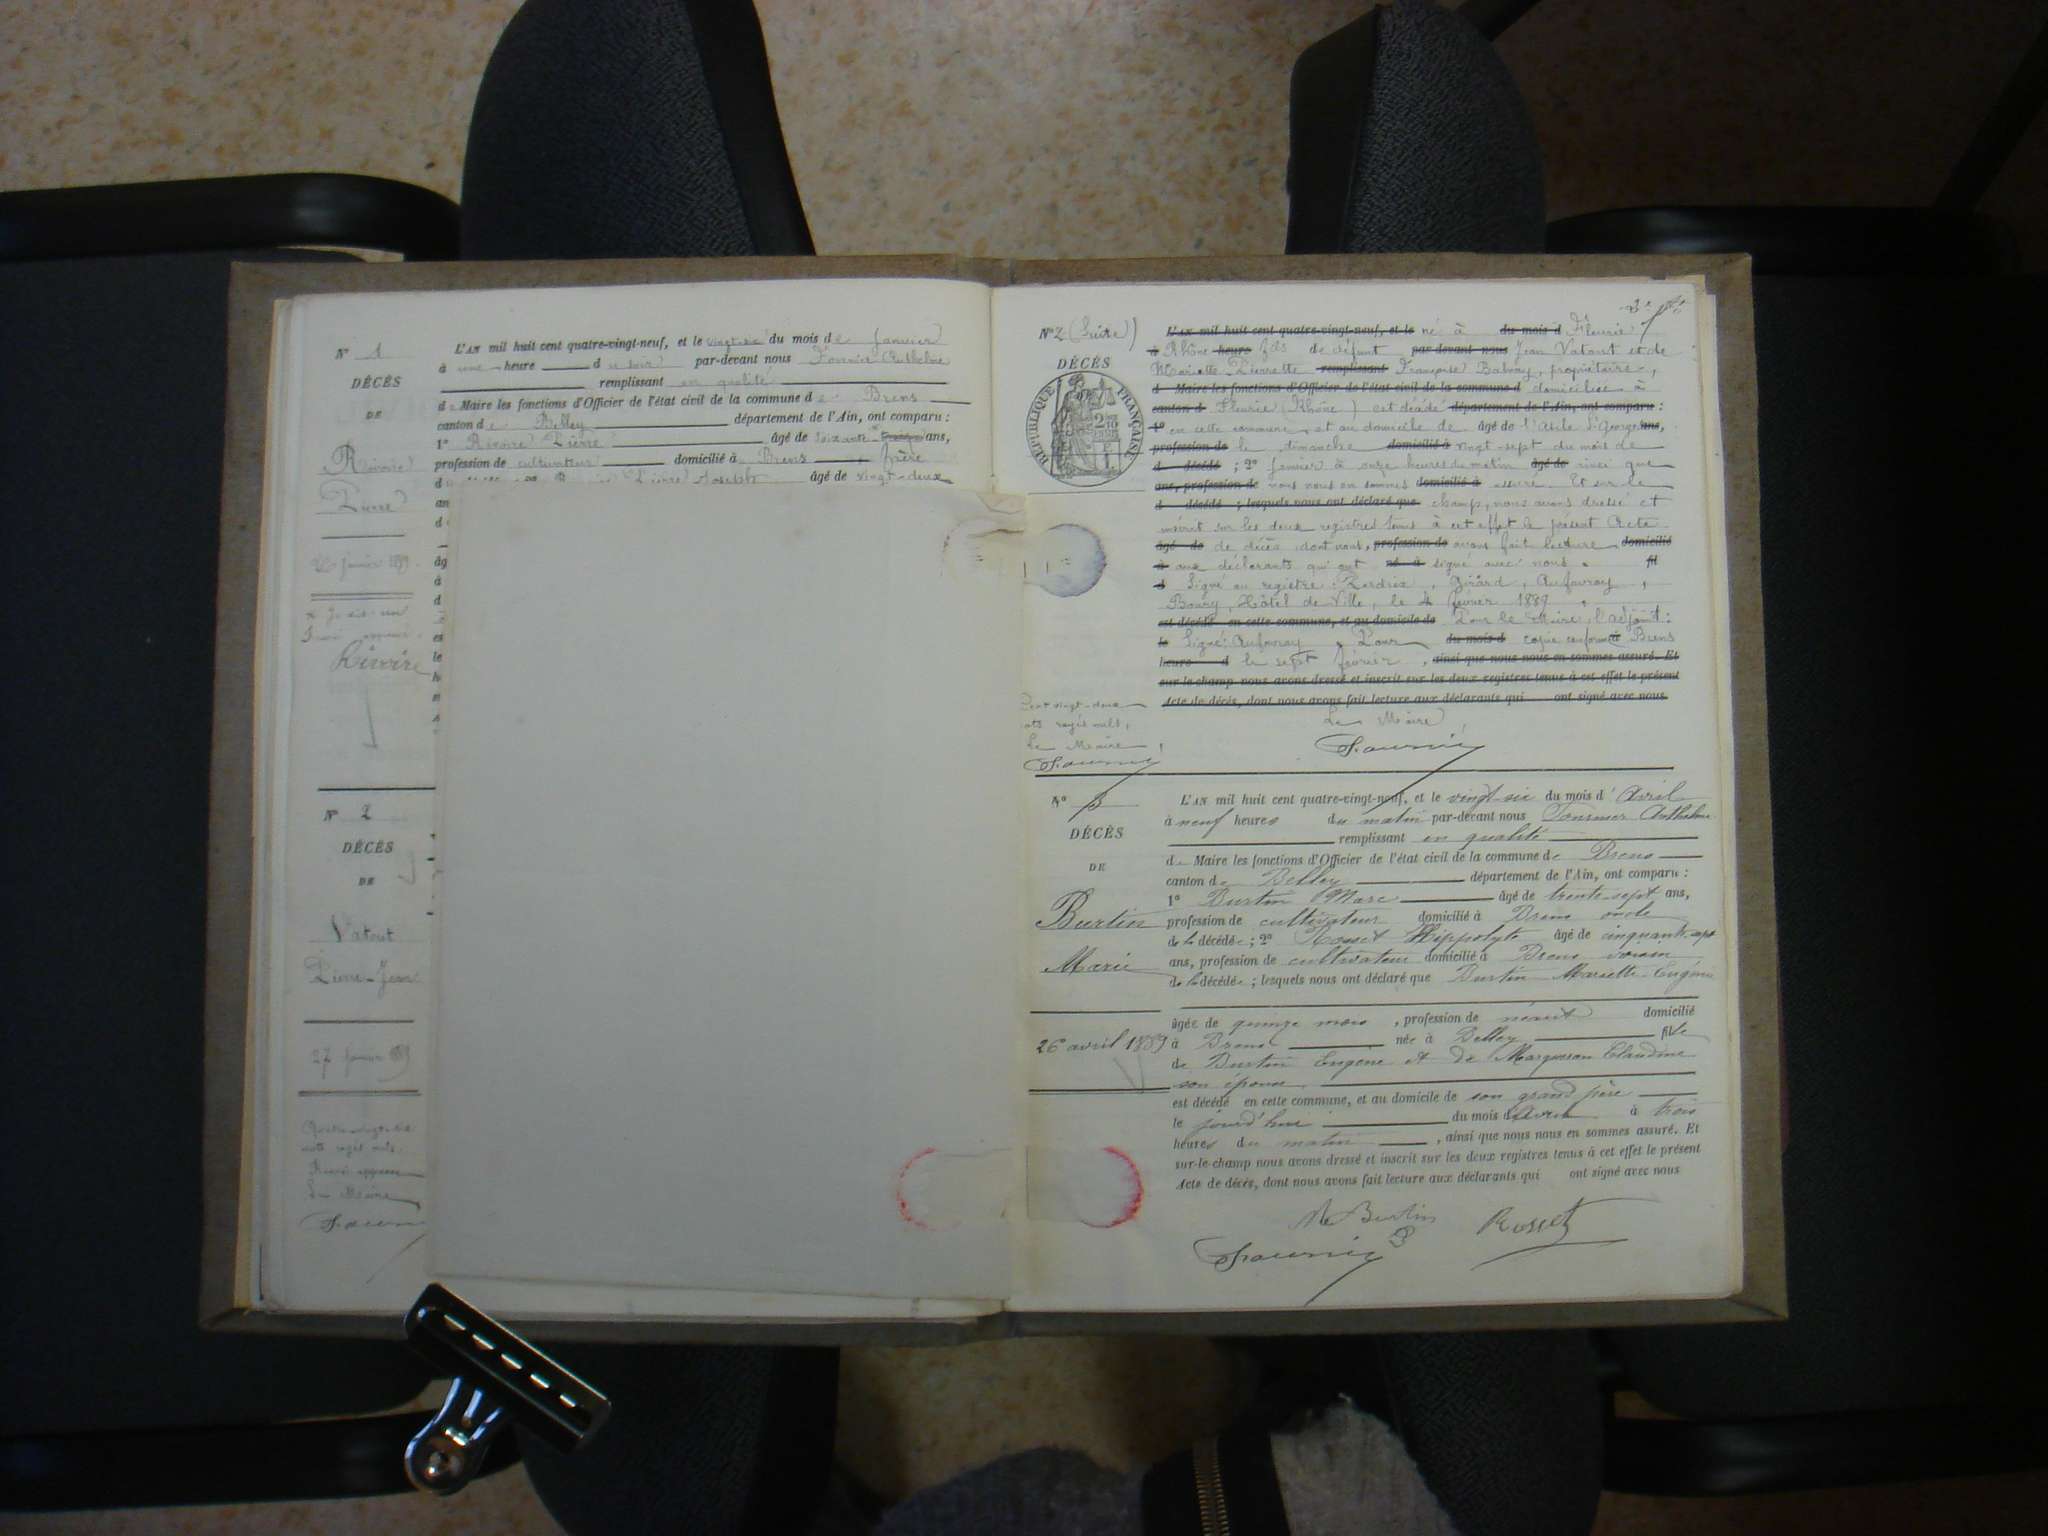 N° 1
DÉCÈS
DE
Rivoire
Pierre
Rivoire
L'AN mil huit cent quatre-vingt-neuf, et le vingt-six du mois de Janvier
à une heure du soir par-devant nous Fournier Anthelme
remplissant en qualité
de Maire les fonctions d'Officier de l'état civil de la commune de Brens
canton de Belley département de l'Ain, ont comparu :
1° Rivoire Pierre âgé de soixante ans,
profession de cultivateur domicilié à Brens frère
Pierre Joseph âgé de vingt-deux
N° 2
DÉCÈS
DE
Vatout
Pierre-Jean
27 Janvier 1889
Le Maire
N° 2 (Suite)
DÉCÈS
RÉPUBLIQUE FRANÇAISE
L'AN mil huit cent quatre-vingt-neuf, et le né à du mois d Fleurie
à Rhône heure fils de défunt par-devant nous Jean Vatout et de
Mariette Pierrette remplissant Françoise Balvay, propriétaire,
d Maire les fonctions d'Officier de l'état civil de la commune d domiciliée à
canton d Fleurie (Rhône) est décédé département de l'Ain, ont comparu :
1° en cette commune et au domicile de âgé de l'Asile St George ans,
profession de le dimanche domicilié à vingt-sept du mois de
d décédé ; 2° Janvier à onze heures du matin âgé de ainsi que
ans, profession de nous nous en sommes domicilié à assuré. Et sur le
d décédé ; lesquels nous ont déclaré que champ, nous avons dressé et
inscrit sur les deux registres tenus à cet effet le présent Acte
âgé de de décès dont nous, profession de avons fait lecture domicilié
à aux déclarants qui ont né à signé avec nous. fil
d Signé au registre : Perdrix, Girard, Aufavray,
Bourg, Hôtel de Ville, le 4 février 1889.
est décédé en cette commune, et au domicile de Pour le Maire, l'adjoint :
le Signé : Aufavray Pour du mois d copie conforme à Brens
heure d le sept février, ainsi que nous nous en sommes assuré. Et
sur-le-champ nous avons dressé et inscrit sur les deux registres tenus à cet effet le présent
Acte de décès, dont nous avons fait lecture aux déclarants qui ont signé avec nous
Cent vingt-deux
mots rayés nuls,
Le Maire,
Le Maire
N° 3
DÉCÈS
DE
Burtin
Marie
26 avril 1889
L'AN mil huit cent quatre-vingt-neuf, et le vingt-six du mois d' Avril
à neuf heures du matin par-devant nous Fournier Anthelme
remplissant en qualité
de Maire les fonctions d'Officier de l'état civil de la commune de Brens
canton de Belley département de l'Ain, ont comparu :
1° Burtin Marc âgé de trente-sept ans,
profession de cultivateur domicilié à Brens oncle
de la décédée ; 2° Rosset Hippolyte âgé de cinquante-sept
ans, profession de cultivateur domicilié à Brens voisin
de la décédée ; lesquels nous ont déclaré que Burtin Mariette-Eugénie
âgée de quinze mois, profession de néant domicilié
à Brens née à Belley fille
de Burtin Eugène et de Claudine
son épouse.
est décédé en cette commune, et au domicile de son grand père
le jourd'hui du mois d'Avril à trois
heures du matin, ainsi que nous nous en sommes assuré. Et
sur-le-champ nous avons dressé et inscrit sur les deux registres tenus à cet effet le présent
Acte de décès, dont nous avons fait lecture aux déclarants qui ont signé avec nous
M Burtin Rosset